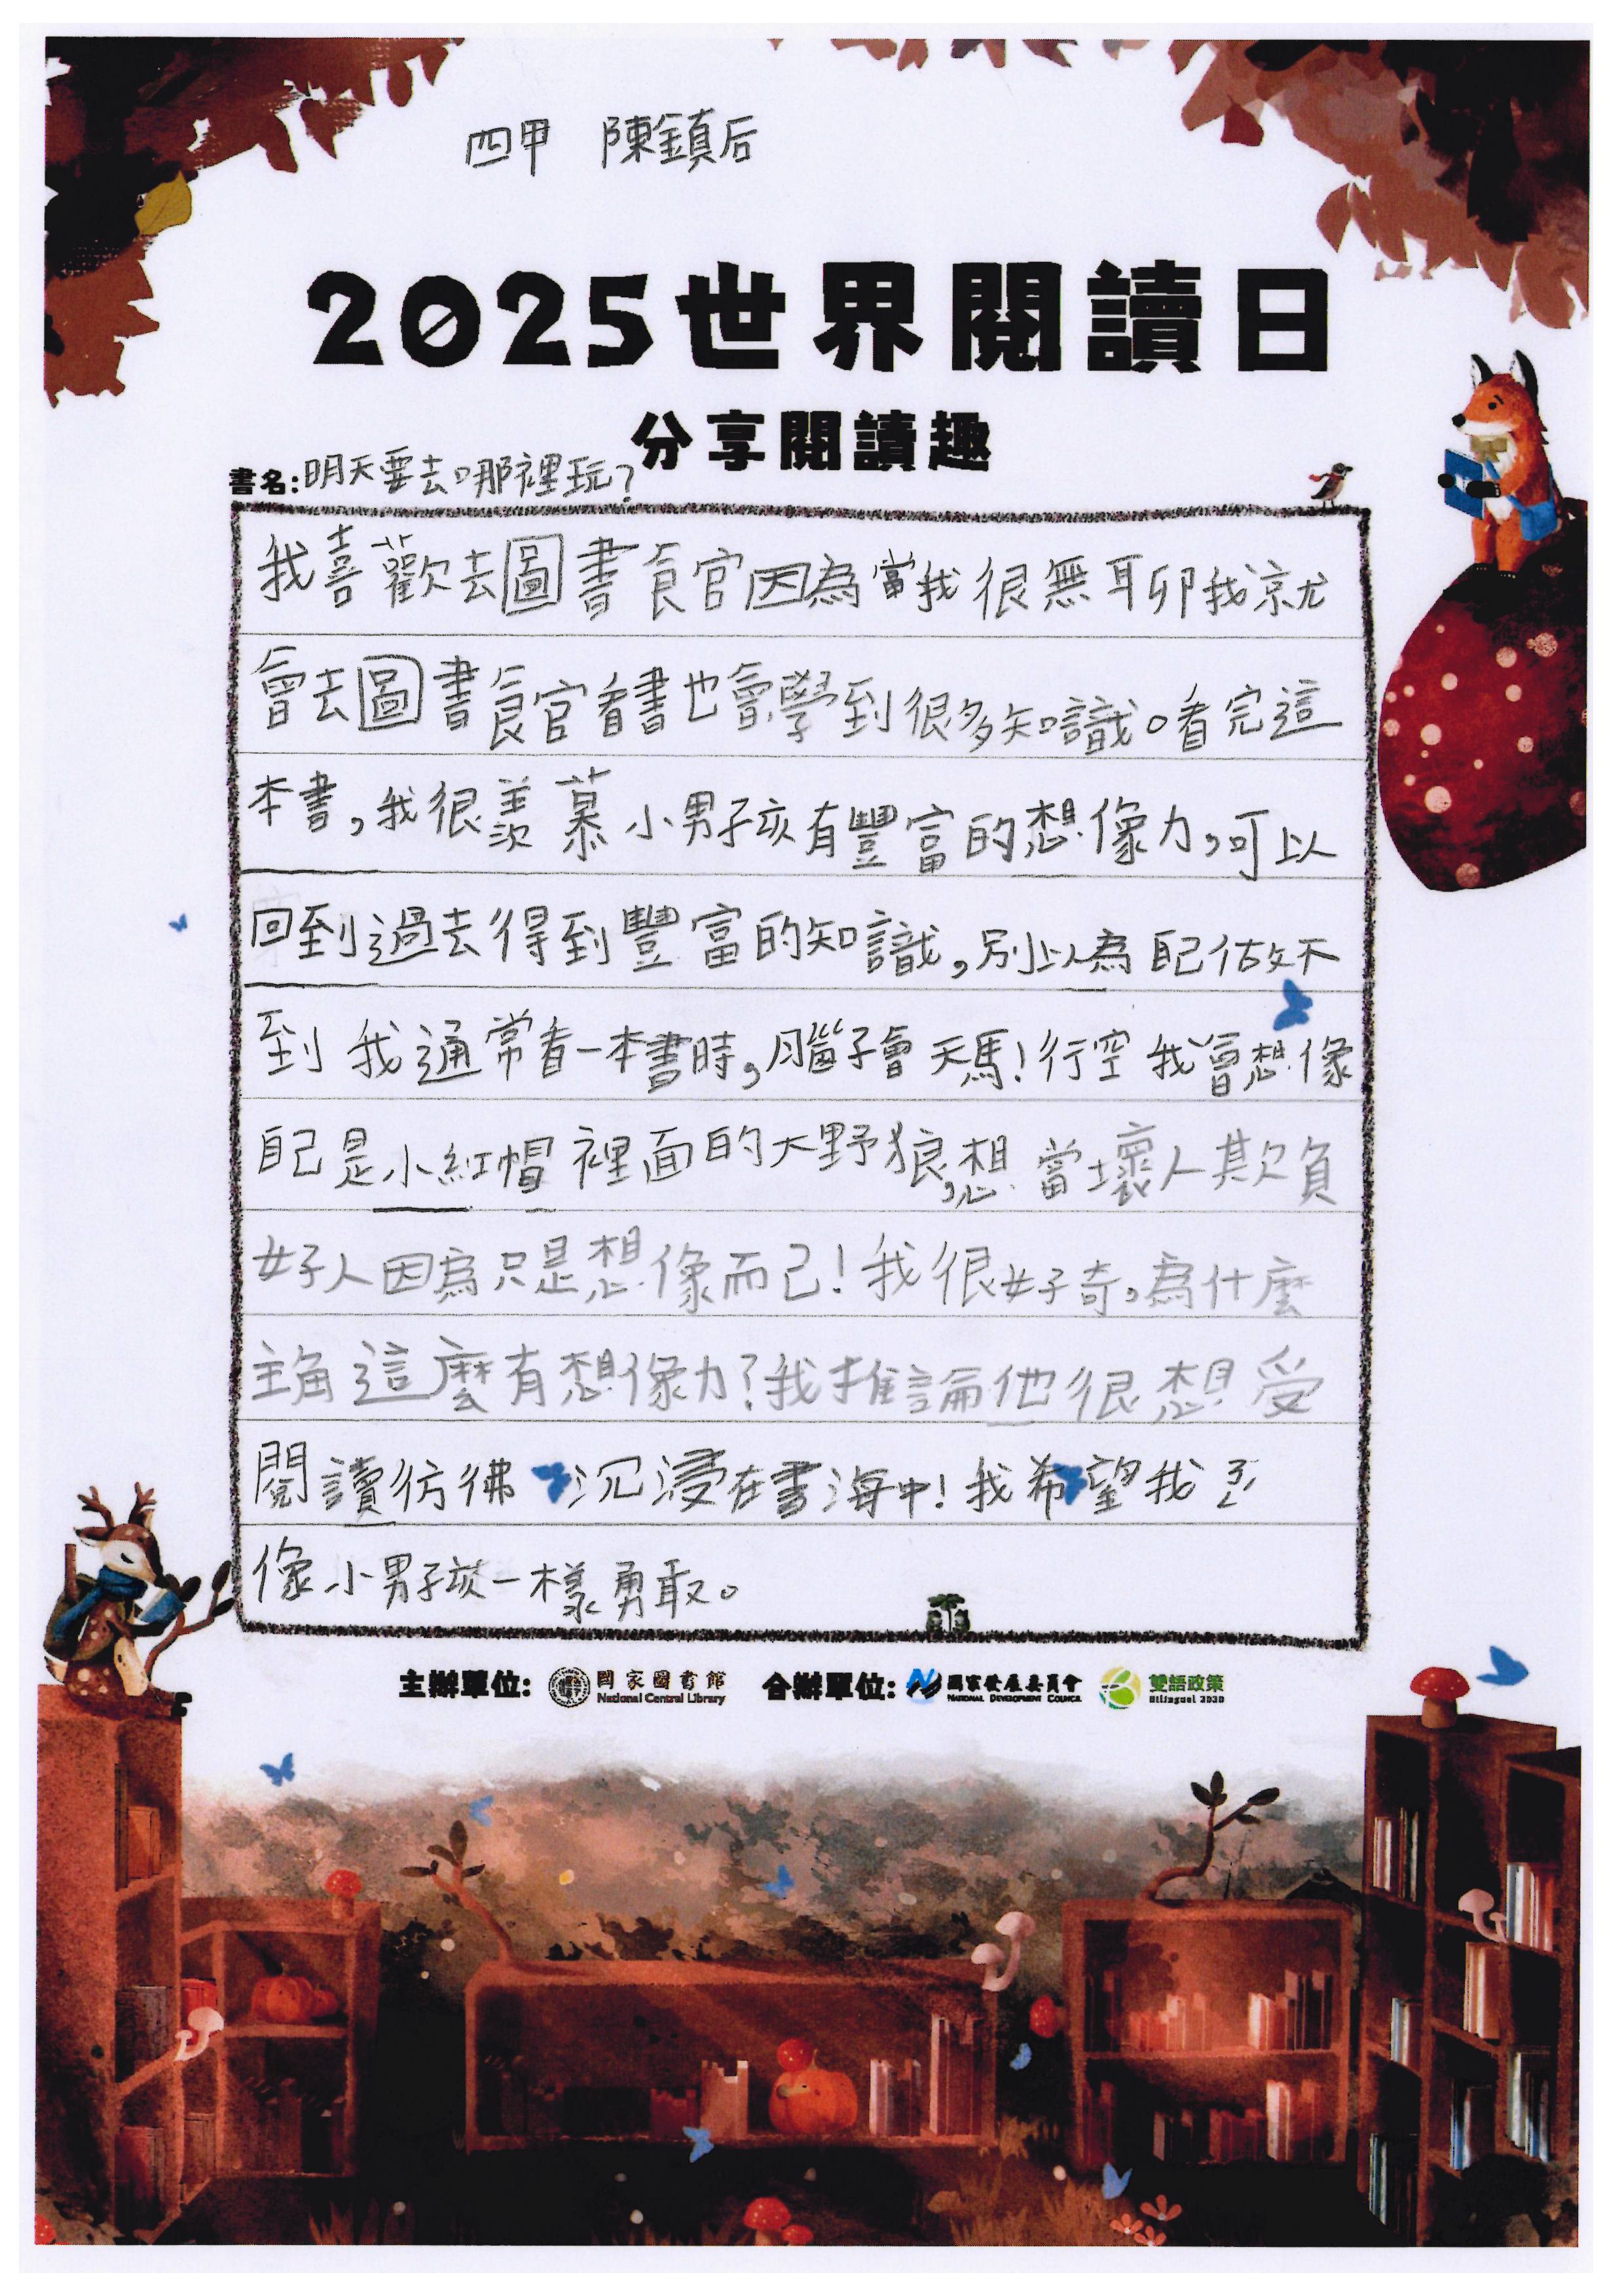 四甲 陳鎮后
2025世界閱讀日
分享閱讀趣
書名:明天要去哪裡玩?
我喜歡去圖書館因為當我很無聊我就
會去圖書館看書也會學到很多知識。看完這
本書,我很羨慕小男孩有豐富的想像力,可以
回到過去得到豐富的知識,別以為自己估做不
到我通常看一本書時,腦子會天馬!行空我會想像
自己是小紅帽裡面的大野狼,想當壞人欺負
好人因為只是想像而己!我很好奇,為什麼
主角這麼有想像力?我推論他很想受
閱讀彷彿沉浸在書海中!我希望我
像小男孩一樣勇敢。
主辦單位: 國家圖書館 National Central Library 合辦單位: 國家發展委員會 National Development Council 雙語政策 Bilingual 2030